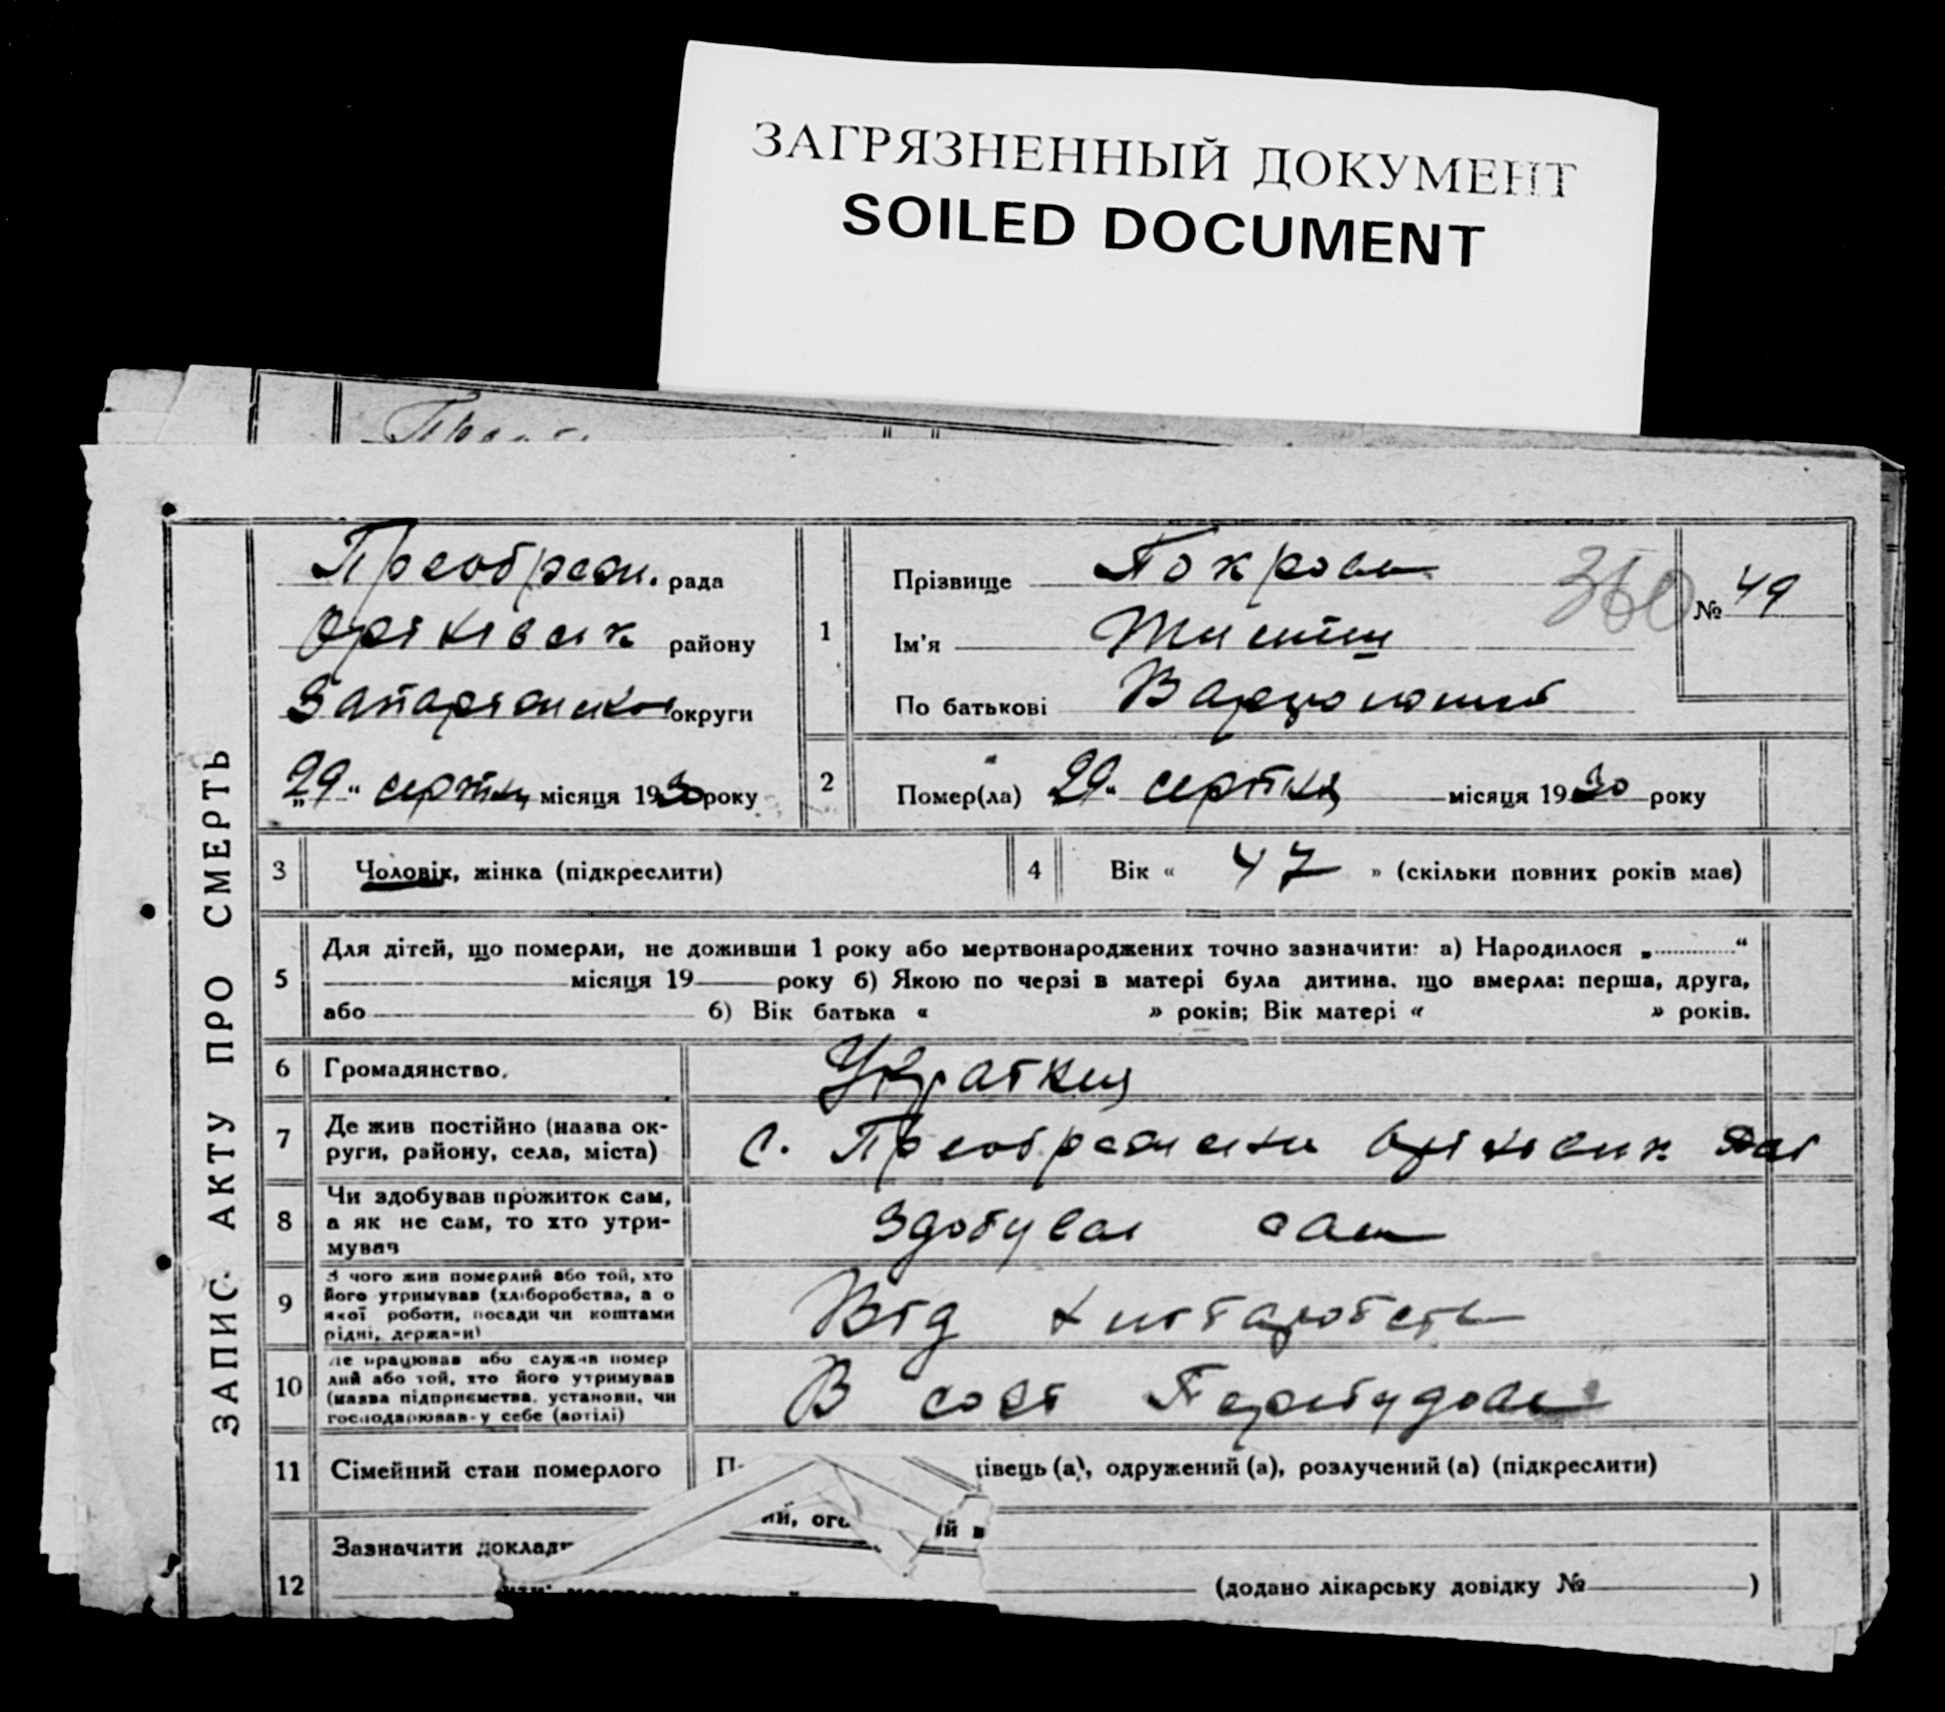 ЗАГРЯЗНЕННЫЙ ДОКУМЕНТ
SOILED DOCUMENT
ЗАПИС АКТУ ПРО СМЕРТЬ
Преображ. рада
Оріхівськ району
Запоріжськ округи
„29“ серпня місяця 1930 року
1
Прізвище
Ім'я
По батькові
360
№ 49
2
Помер(ла) 29“ серпня місяця 1930 року
3
Чоловік, жінка (підкреслити)
4
Вік « 47 » (скільки повних років мав)
5
Для дітей, що померли, не доживши 1 року або мертвонароджених точно зазначити: а) Народилося „ “
місяця 19 року б) Якою по черзі в матері була дитина, що вмерла: перша, друга,
або б) Вік батька « » років; Вік матері « » років.
6
Громадянство.
7
Де жив постійно (назва ок-
руги, району, села, міста)
с. Преображенка Оріхівськ
8
Чи здобував прожиток сам,
а як не сам, то хто утри-
мував
Здобував сам
9
З чого жив померлий або той, хто
його утримував (хліборобства, а о
якої роботи, посади чи коштами
рідні, держави)
Від
10
Де працював або служив помер
лий або той, хто його утримував
(назва підприємства, установи, чи
господарював у себе (артілі)
В
11
Сімейний стан померлого
івець (а), одружений (а), розлучений (а) (підкреслити)
12
Зазначити доклад
(додано лікарську довідку № )